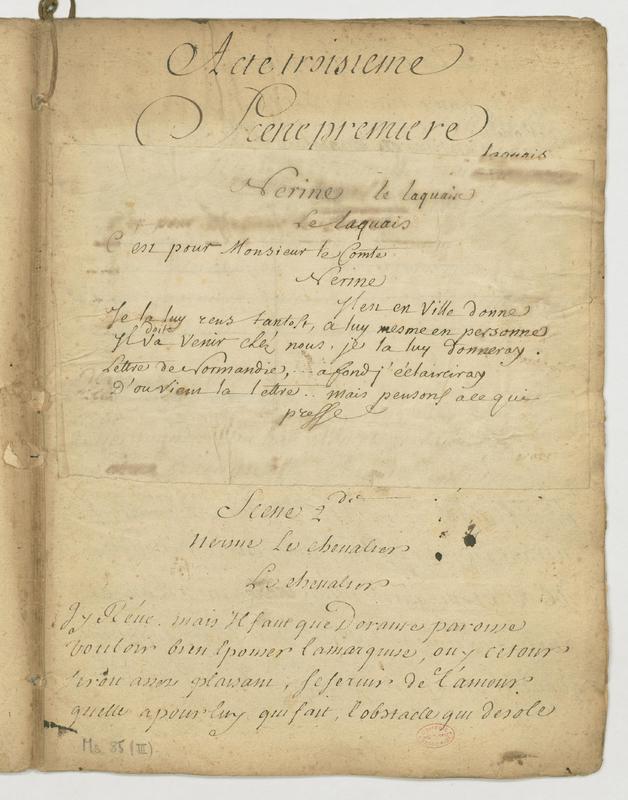 Acte troisieme
Scene premiere
laquais
Nerine le laquais
Le laquais
C est pour Monsieur le Comte
Nerine
Il en en Ville donne
Je la luy rens tantost, a luy mesme en personne
Il doit venir chéz nous, je la luy donneray.
Lettre de Normandie, .. a fond j'éclairciray
D'ou vient la lettre .. mais pensons a ce qui
presse
Scene 2de
nerine Le chevalier
Le chevalier
J'y Réve. mais Il faut que Dorante paroisse
vouloir bien Epouser la marquise, ouy ce tour
seroit assez plaisant, se servir de l'amour
quelle a pour luy qui fait, l'obstacle qui desole
Ms. 85 (III)